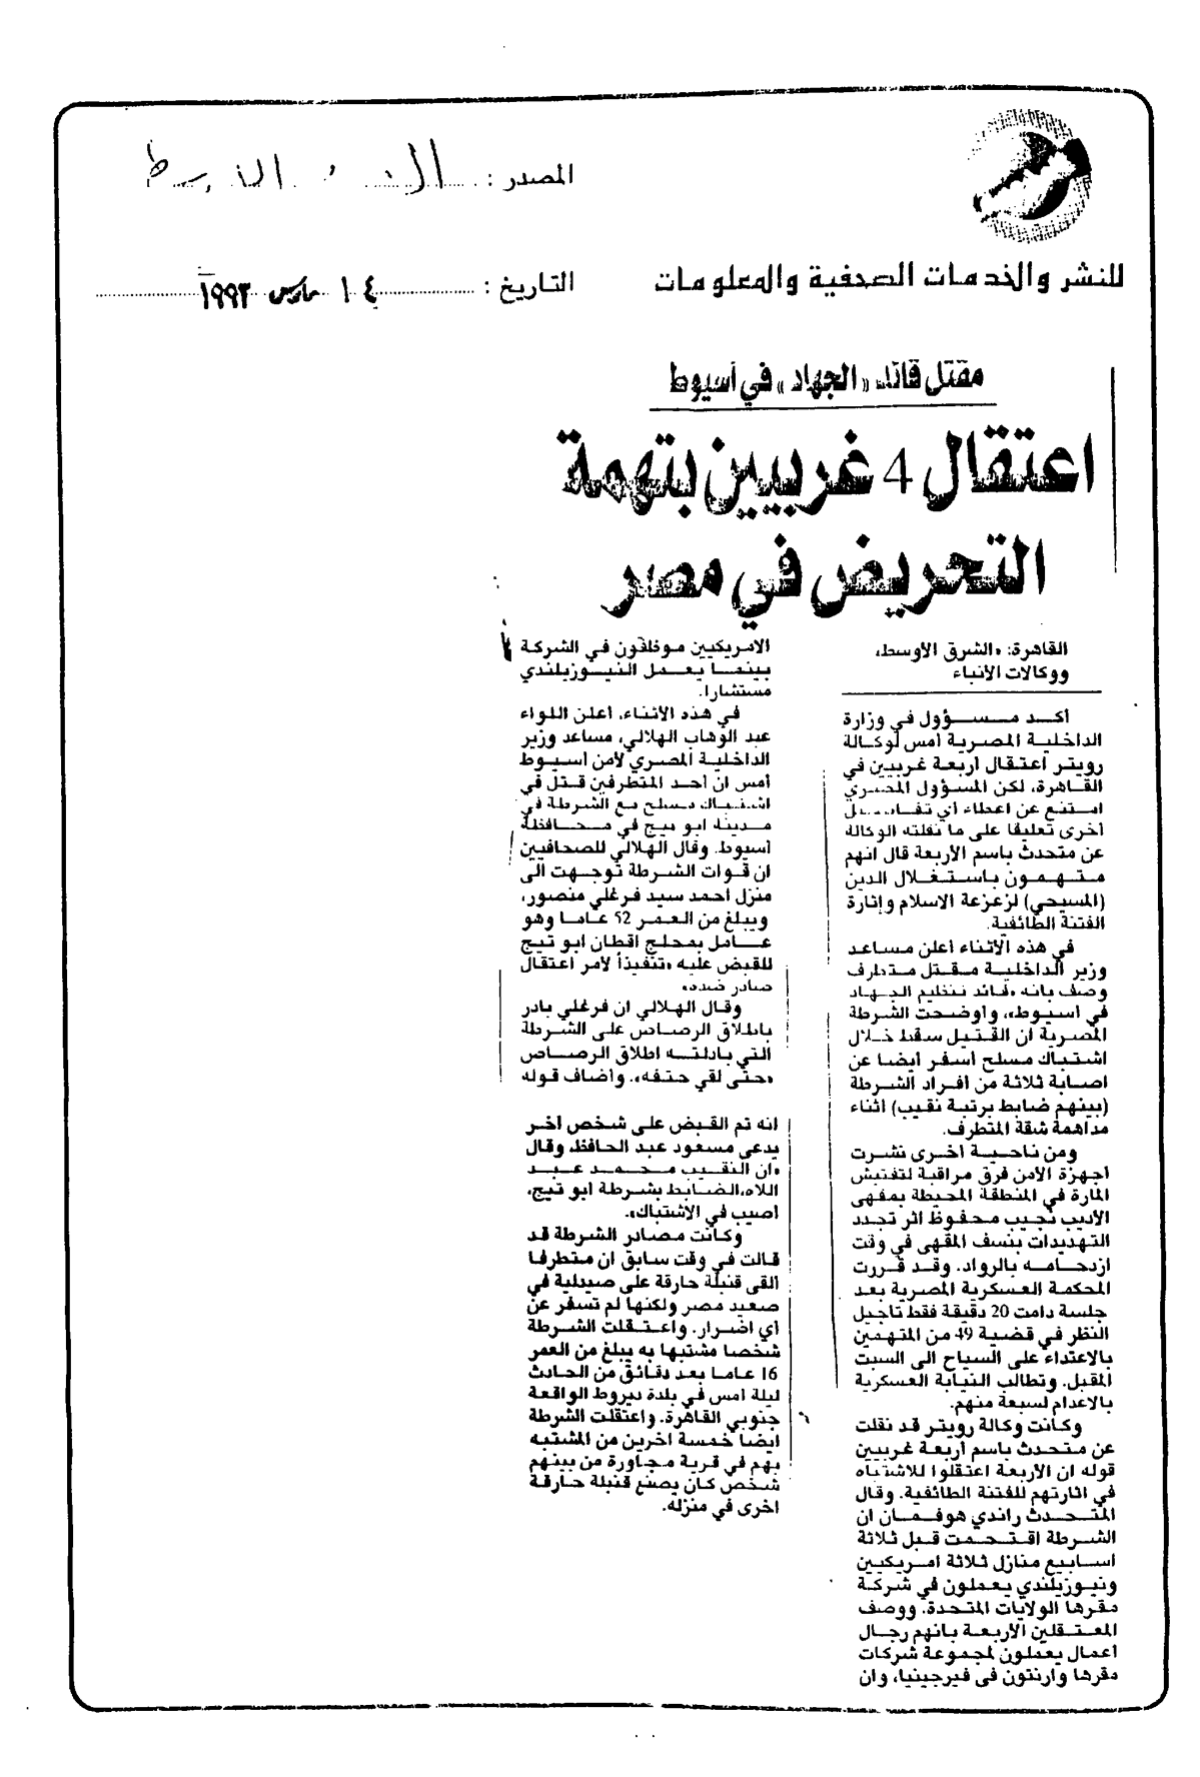 المصدر :
للنشر والخدمات الصحفية والمعلومات
التاريخ : ١٤ مارس ١٩٩٣
مقتل قائد «الجهاد» في أسيوط
اعتقال 4 غربيين بتهمة
التحريض في مصر
القاهرة: «الشرق الأوسط»
ووكالات الأنباء
أكد مسؤول في وزارة
الداخلية المصرية أمس لوكالة
رويتر اعتقال أربعة غربيين في
القاهرة، لكن المسؤول المصري
امتنع عن اعطاء أي تفاصيل
أخرى تعليقا على ما نقلته الوكالة
عن متحدث باسم الأربعة قال انهم
متهمون باستغلال الدين
(المسيحي) لزعزعة الاسلام وإثارة
الفتنة الطائفية.
في هذه الأثناء أعلن مساعد
وزير الداخلية مقتل متطرف
وصف بانه «قائد تنظيم الجهاد
في اسيوط»، وأوضحت الشرطة
المصرية ان القتيل سقط خلال
اشتباك مسلح اسفر ايضا عن
اصابة ثلاثة من افراد الشرطة
(بينهم ضابط برتبة نقيب) اثناء
مداهمة شقة المتطرف.
ومن ناحية اخرى نشرت
اجهزة الأمن فرق مراقبة لتفتيش
المارة في المنطقة المحيطة بمقهى
الأديب نجيب محفوظ اثر تجدد
التهديدات بنسف المقهى في وقت
ازدحامه بالرواد. وقد قررت
المحكمة العسكرية المصرية بعد
جلسة دامت 20 دقيقة فقط تأجيل
النظر في قضية 49 من المتهمين
بالاعتداء على السياح الى السبت
المقبل. وتطالب النيابة العسكرية
بالاعدام لسبعة منهم.
وكانت وكالة رويتر قد نقلت
عن متحدث باسم أربعة غربيين
قوله ان الأربعة اعتقلوا للاشتباه
في اثارتهم للفتنة الطائفية. وقال
المتحدث راندي هوفمان ان
الشرطة اقتحمت قبل ثلاثة
اسابيع منازل ثلاثة امريكيين
ونيوزيلندي يعملون في شركة
مقرها الولايات المتحدة. ووصف
المعتقلين الأربعة بانهم رجال
أعمال يعملون لمجموعة شركات
مقرها وارنتون في فيرجينيا، وان
الامريكيين موظفون في الشركة
بينما يعمل النيوزيلندي
مستشارا.
في هذه الأثناء، أعلن اللواء
عبد الوهاب الهلالي، مساعد وزير
الداخلية المصري لأمن أسيوط
أمس ان أحد المتطرفين قتل في
اشتباك مسلح مع الشرطة في
مدينة ابو تيج في محافظة
أسيوط. وقال الهلالي للصحافيين
ان قوات الشرطة توجهت الى
منزل احمد سيد فرغلي منصور،
ويبلغ من العمر 52 عاما وهو
عامل بمحلج اقطان ابو تيج
للقبض عليه «تنفيذاً لأمر اعتقال
صادر ضده»
وقال الهلالي ان فرغلي بادر
باطلاق الرصاص على الشرطة
التي بادلته اطلاق الرصاص
«حتى لقي حتفه». وأضاف قوله
انه تم القبض على شخص آخر
يدعى مسعود عبد الحافظ، وقال
«ان النقيب محمد عبد
اللاه، الضابط بشرطة ابو تيج،
اصيب في الاشتباك».
وكانت مصادر الشرطة قد
قالت في وقت سابق ان متطرفا
القى قنبلة حارقة على صيدلية في
صعيد مصر ولكنها لم تسفر عن
أي اضرار. واعتقلت الشرطة
شخصا مشتبها به يبلغ من العمر
16 عاما بعد دقائق من الحادث
ليلة امس في بلدة ديروط الواقعة
جنوبي القاهرة. واعتقلت الشرطة
ايضا خمسة اخرين من المشتبه
بهم في قرية مجاورة من بينهم
شخص كان يصنع قنبلة حارقة
اخرى في منزله.